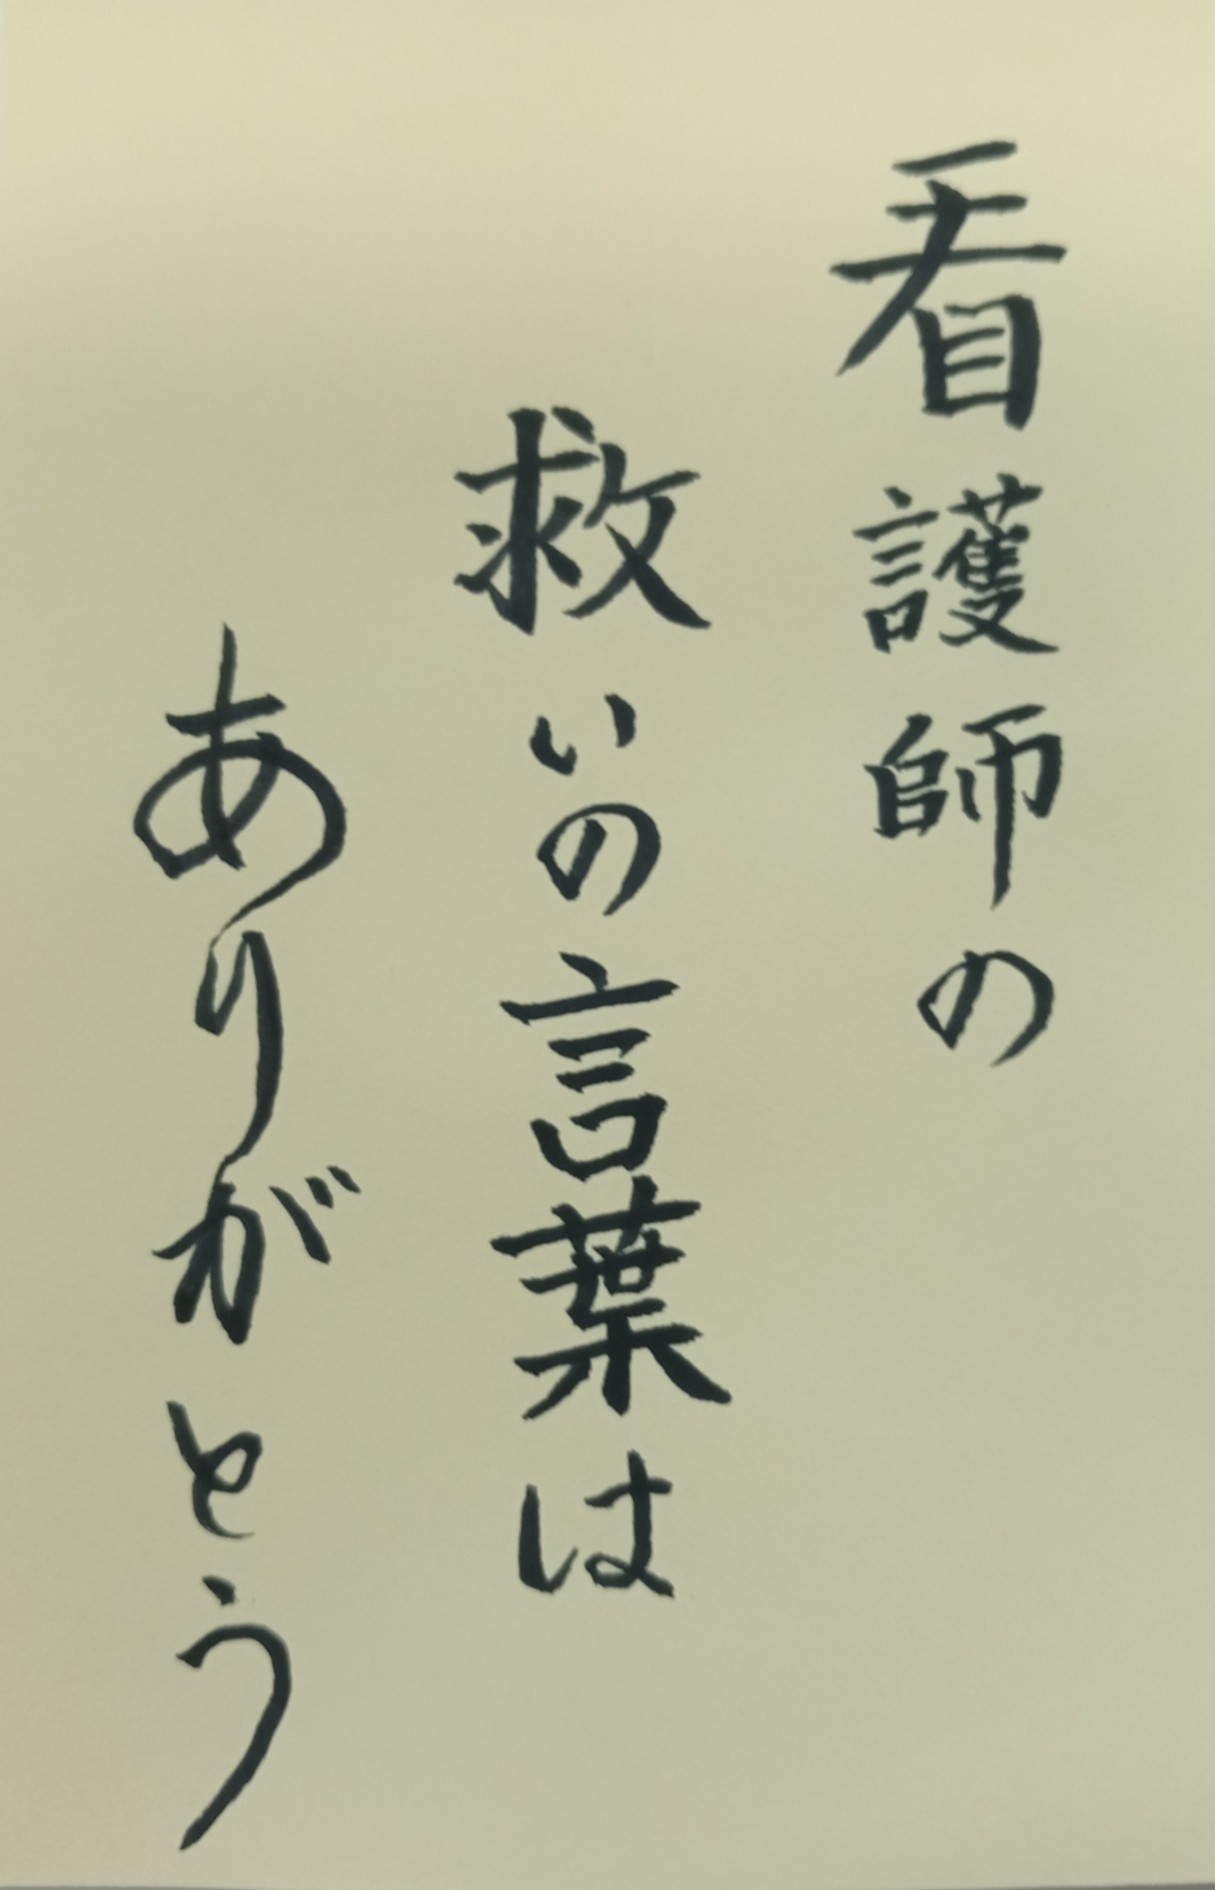 看護師の
救いの言葉は
ありがとう